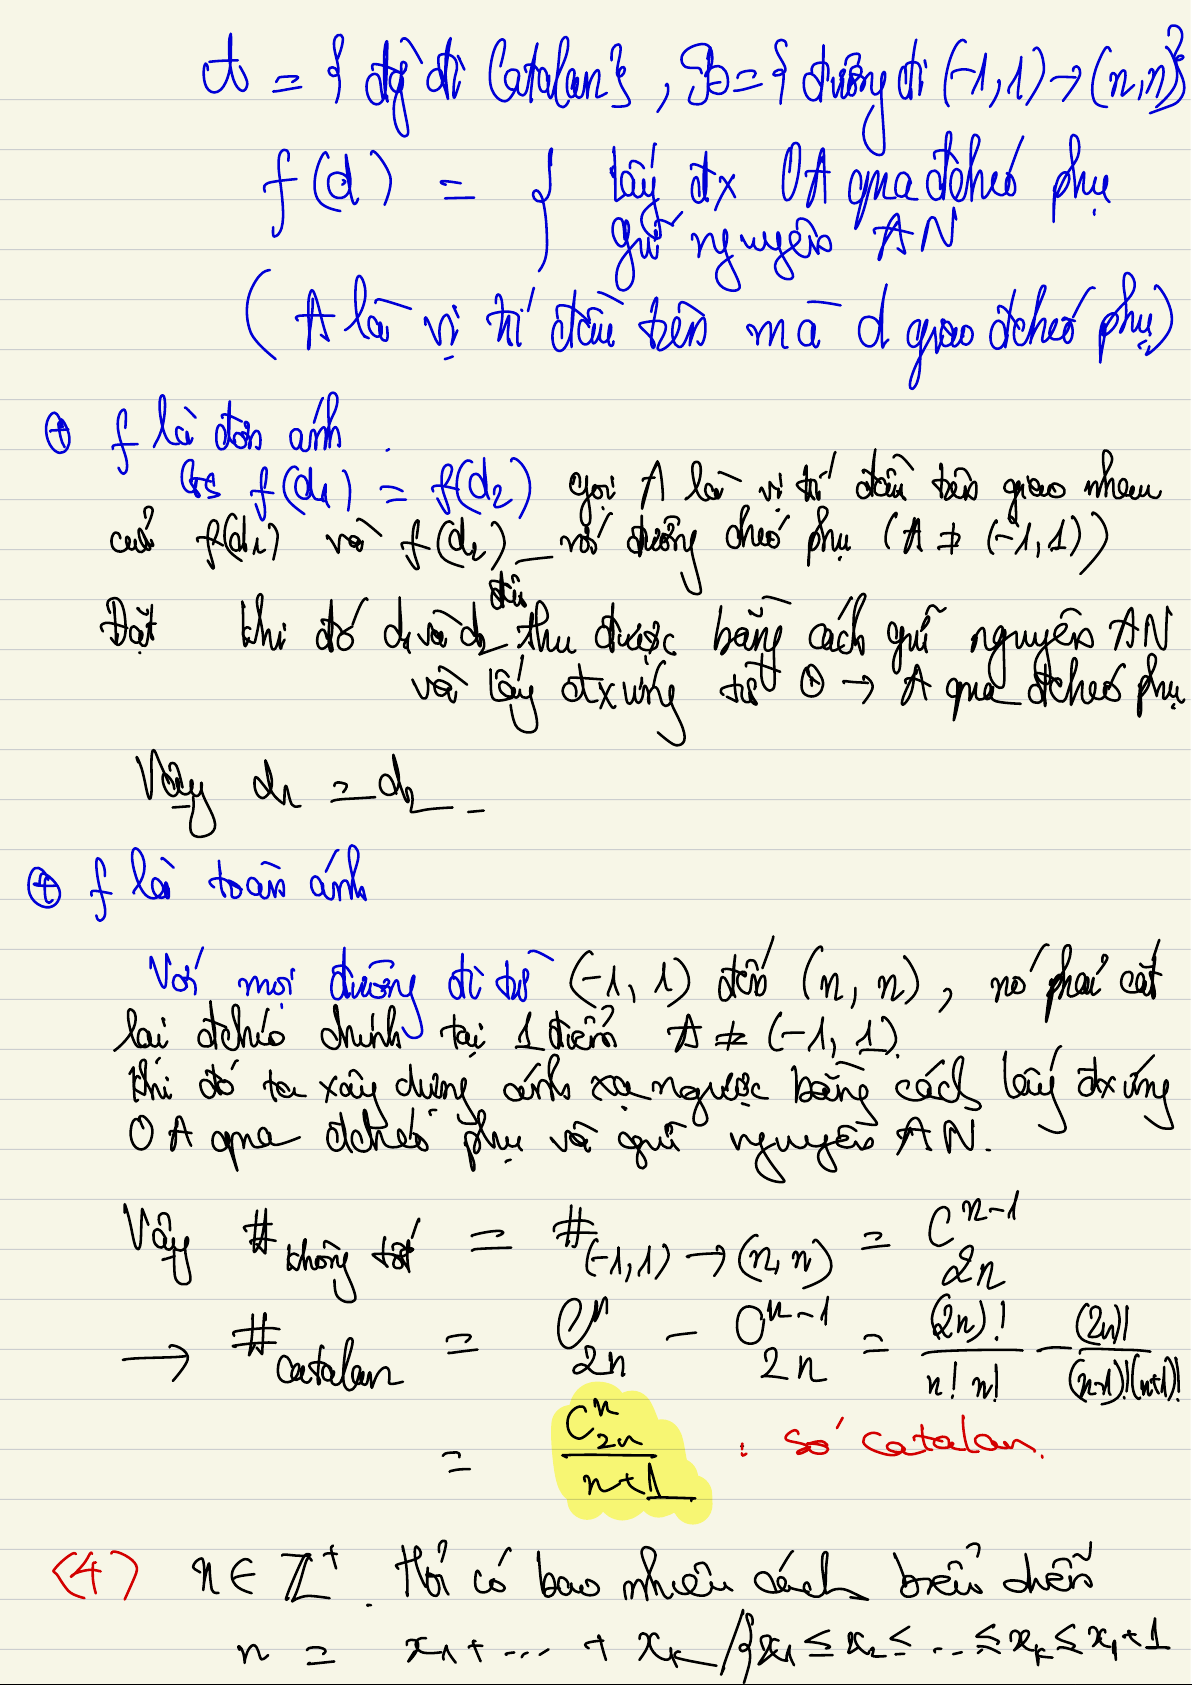 A = { đg đi Catalan}, B = { đường đi (-1,1) → (n,n)}
f(d) = { lấy đx OA qua đchéo phụ
giữ nguyên AN
( A là vị trí đầu tiên mà d giao đchéo phụ)
⊕ f là đơn ánh.
Gs f(d1) = f(d2) gọi A là vị trí đầu tiên giao nhau
của f(d1) và f(d2) với đường chéo phụ (A ≠ (-1,1))
Đặt khi đó d1 và d2 đều thu được bằng cách giữ nguyên AN
và lấy đxứng từ O → A qua đchéo phụ
Vậy d1 = d2.
⊕ f là toàn ánh
Với mọi đường đi từ (-1,1) đến (n, n), nó phải cắt
lại đchéo chính tại 1 điểm A ≠ (-1, 1).
Khi đó ta xây dựng ánh xạ ngược bằng cách lấy đxứng
OA qua đchéo phụ và giữ nguyên AN.
Vậy # không tốt = # (-1,1) → (n,n) = C^{n-1}_{2n}
→ # catalan = C^{n}_{2n} - C^{n-1}_{2n} = (2n)!/(n! n!) - (2n)!/((n-1)!(n+1)!)
= C^{n}_{2n}/(n+1) : số catalan.
(4) n ∈ Z^+. Hỏi có bao nhiêu cách biểu diễn
n = x1 + ... + xk / { x1 ≤ x2 ≤ ... ≤ xk ≤ x1 + 1